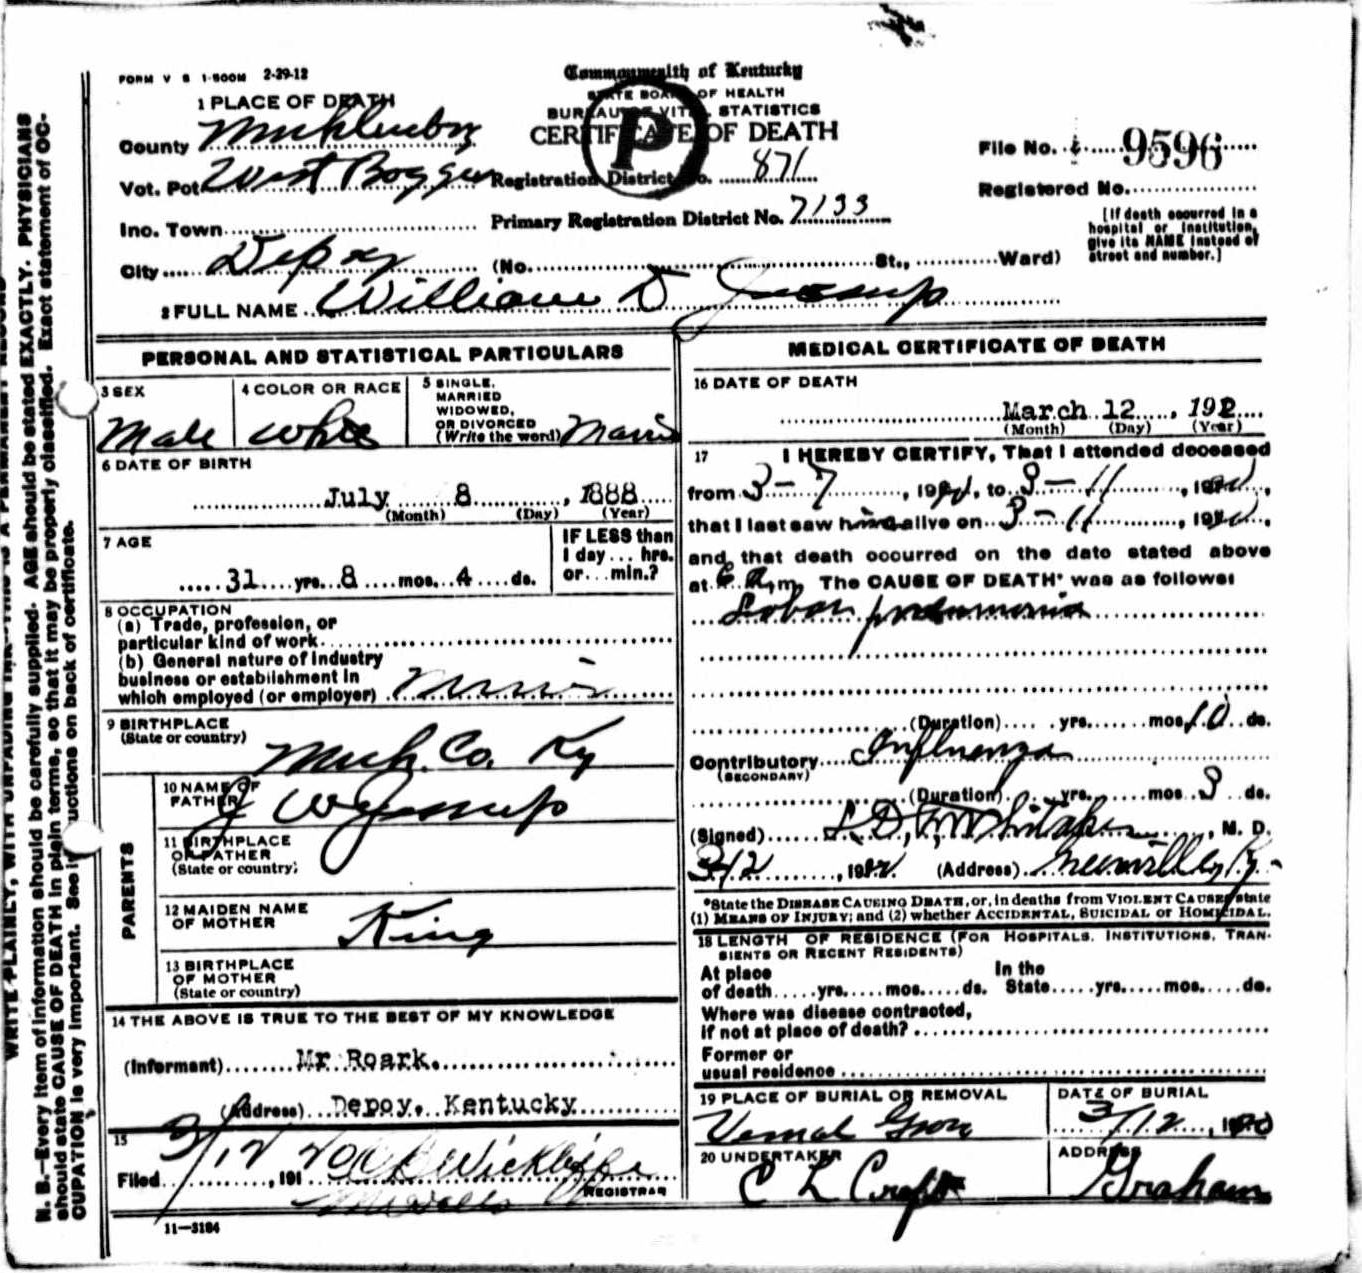 FORM V S 1-500M 2-29-12
Commonwealth of Kentucky
STATE BOARD OF HEALTH
BUREAU OF VITAL STATISTICS
CERTIFICATE OF DEATH
P
1 PLACE OF DEATH
County
Vot. Pct West
Registration District No. 871
File No. 9596
Registered No.
Inc. Town
Primary Registration District No. 7133
[If death occurred in a
hospital or institution,
give its NAME instead of
street and number.]
City Depoy (No. St., Ward)
2 FULL NAME William D Jessup
PERSONAL AND STATISTICAL PARTICULARS
3 SEX
Male
4 COLOR OR RACE
White
5 SINGLE,
MARRIED
WIDOWED,
OR DIVORCED
(Write the word)
6 DATE OF BIRTH
July 8, 1888
(Month) (Day) (Year)
7 AGE
31 yrs. 8 mos. 4 ds.
IF LESS than
1 day ... hrs.
or ... min.?
8 OCCUPATION
(a) Trade, profession, or
particular kind of work
(b) General nature of industry
business or establishment in
which employed (or employer)
9 BIRTHPLACE
(State or country)
Muh. Co. Ky
PARENTS
10 NAME OF
FATHER
J W Jessup
11 BIRTHPLACE
OF FATHER
(State or country)
12 MAIDEN NAME
OF MOTHER
King
13 BIRTHPLACE
OF MOTHER
(State or country)
14 THE ABOVE IS TRUE TO THE BEST OF MY KNOWLEDGE
(Informant) Mr Roark.
(Address) Depoy, Kentucky
15
Filed 3/12, 191 20 Wickliffe
REGISTRAR
11—3184
MEDICAL CERTIFICATE OF DEATH
16 DATE OF DEATH
March 12, 192
(Month) (Day) (Year)
17 I HEREBY CERTIFY, That I attended deceased
from 3-7, to 3-11
that I last saw him alive on 3-11
and that death occurred on the date stated above
at m. The CAUSE OF DEATH* was as follows:
Lobar pneumonia
(Duration) yrs. mos. 10 ds.
Contributory Influenza
(SECONDARY)
(Duration) yrs. mos. 3 ds.
(Signed) Whitaker, M. D.
3/12 (Address) Greenville, Ky.
*State the DISEASE CAUSING DEATH, or, in deaths from VIOLENT CAUSES state
(1) MEANS OF INJURY; and (2) whether ACCIDENTAL, SUICIDAL or HOMICIDAL.
18 LENGTH OF RESIDENCE (FOR HOSPITALS, INSTITUTIONS, TRAN-
SIENTS OR RECENT RESIDENTS)
At place In the
of death yrs. mos. ds. State yrs. mos. ds.
Where was disease contracted,
if not at place of death?
Former or
usual residence
19 PLACE OF BURIAL OR REMOVAL
DATE OF BURIAL
3/12
20 UNDERTAKER
C L
ADDRESS
Graham
N. B.—Every item of information should be carefully supplied. AGE should be stated EXACTLY. PHYSICIANS
should state CAUSE OF DEATH in plain terms, so that it may be properly classified. Exact statement of OC-
CUPATION is very important. See instructions on back of certificate.